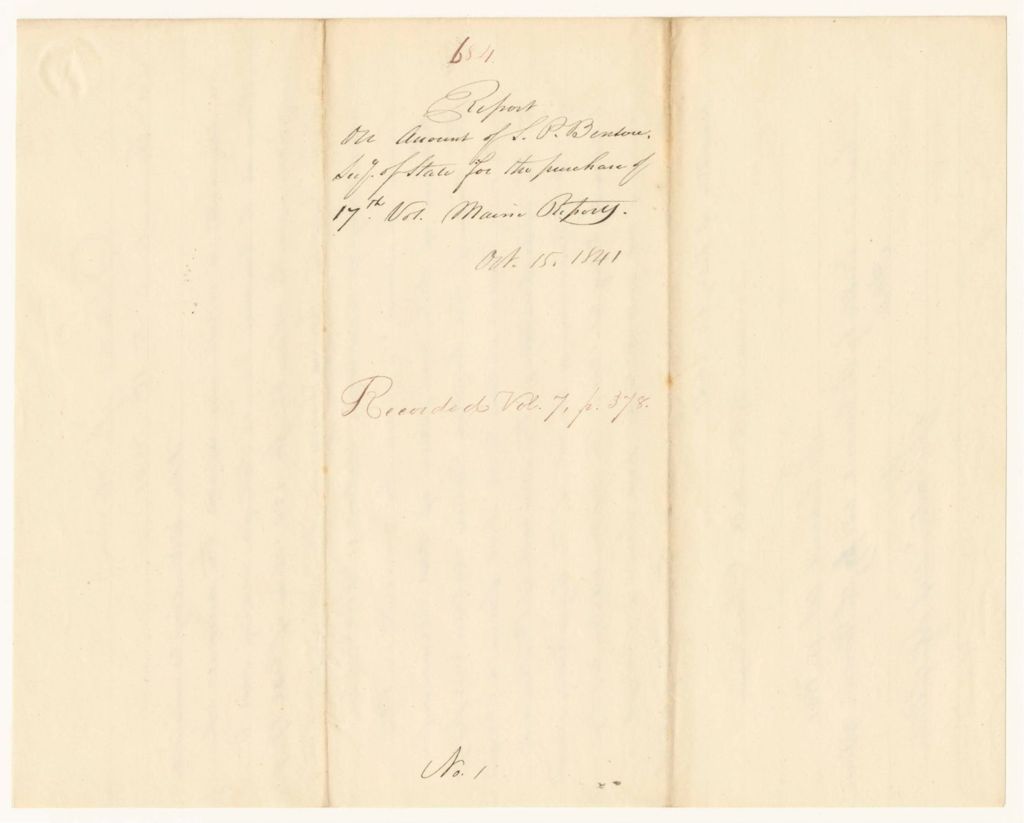 684
Report
On Account of S. P. Benson,
Secy. of State for the purchase of
17th. Vol. Maine Reports.
Oct. 15. 1841
Recorded Vol. 7, p. 378.
No. 1